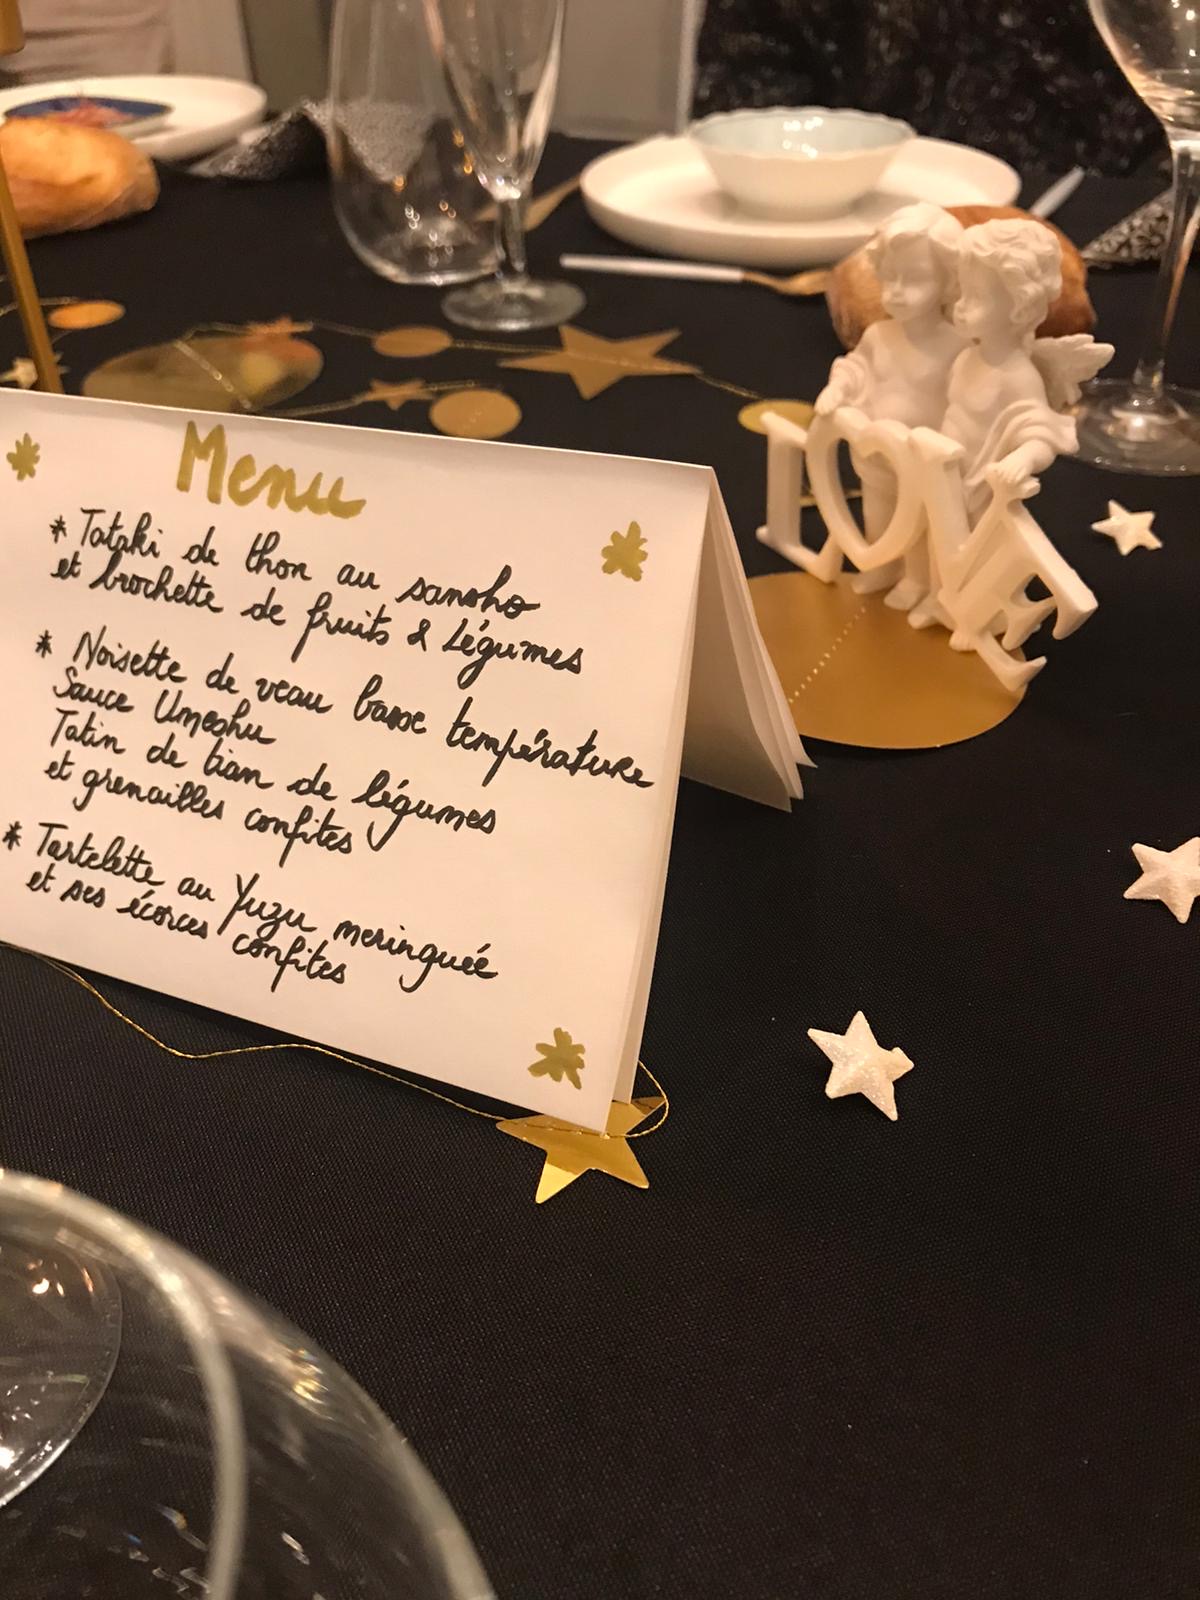 Menu
* Tataki de thon au sansho
et brochette de fruits & Légumes
* Noisette de veau basse température
Sauce Umeshu
Tatin de tian de légumes
et grenailles confites
* Tartelette au Yuzu meringuée
et ses écorces confites
LOVE